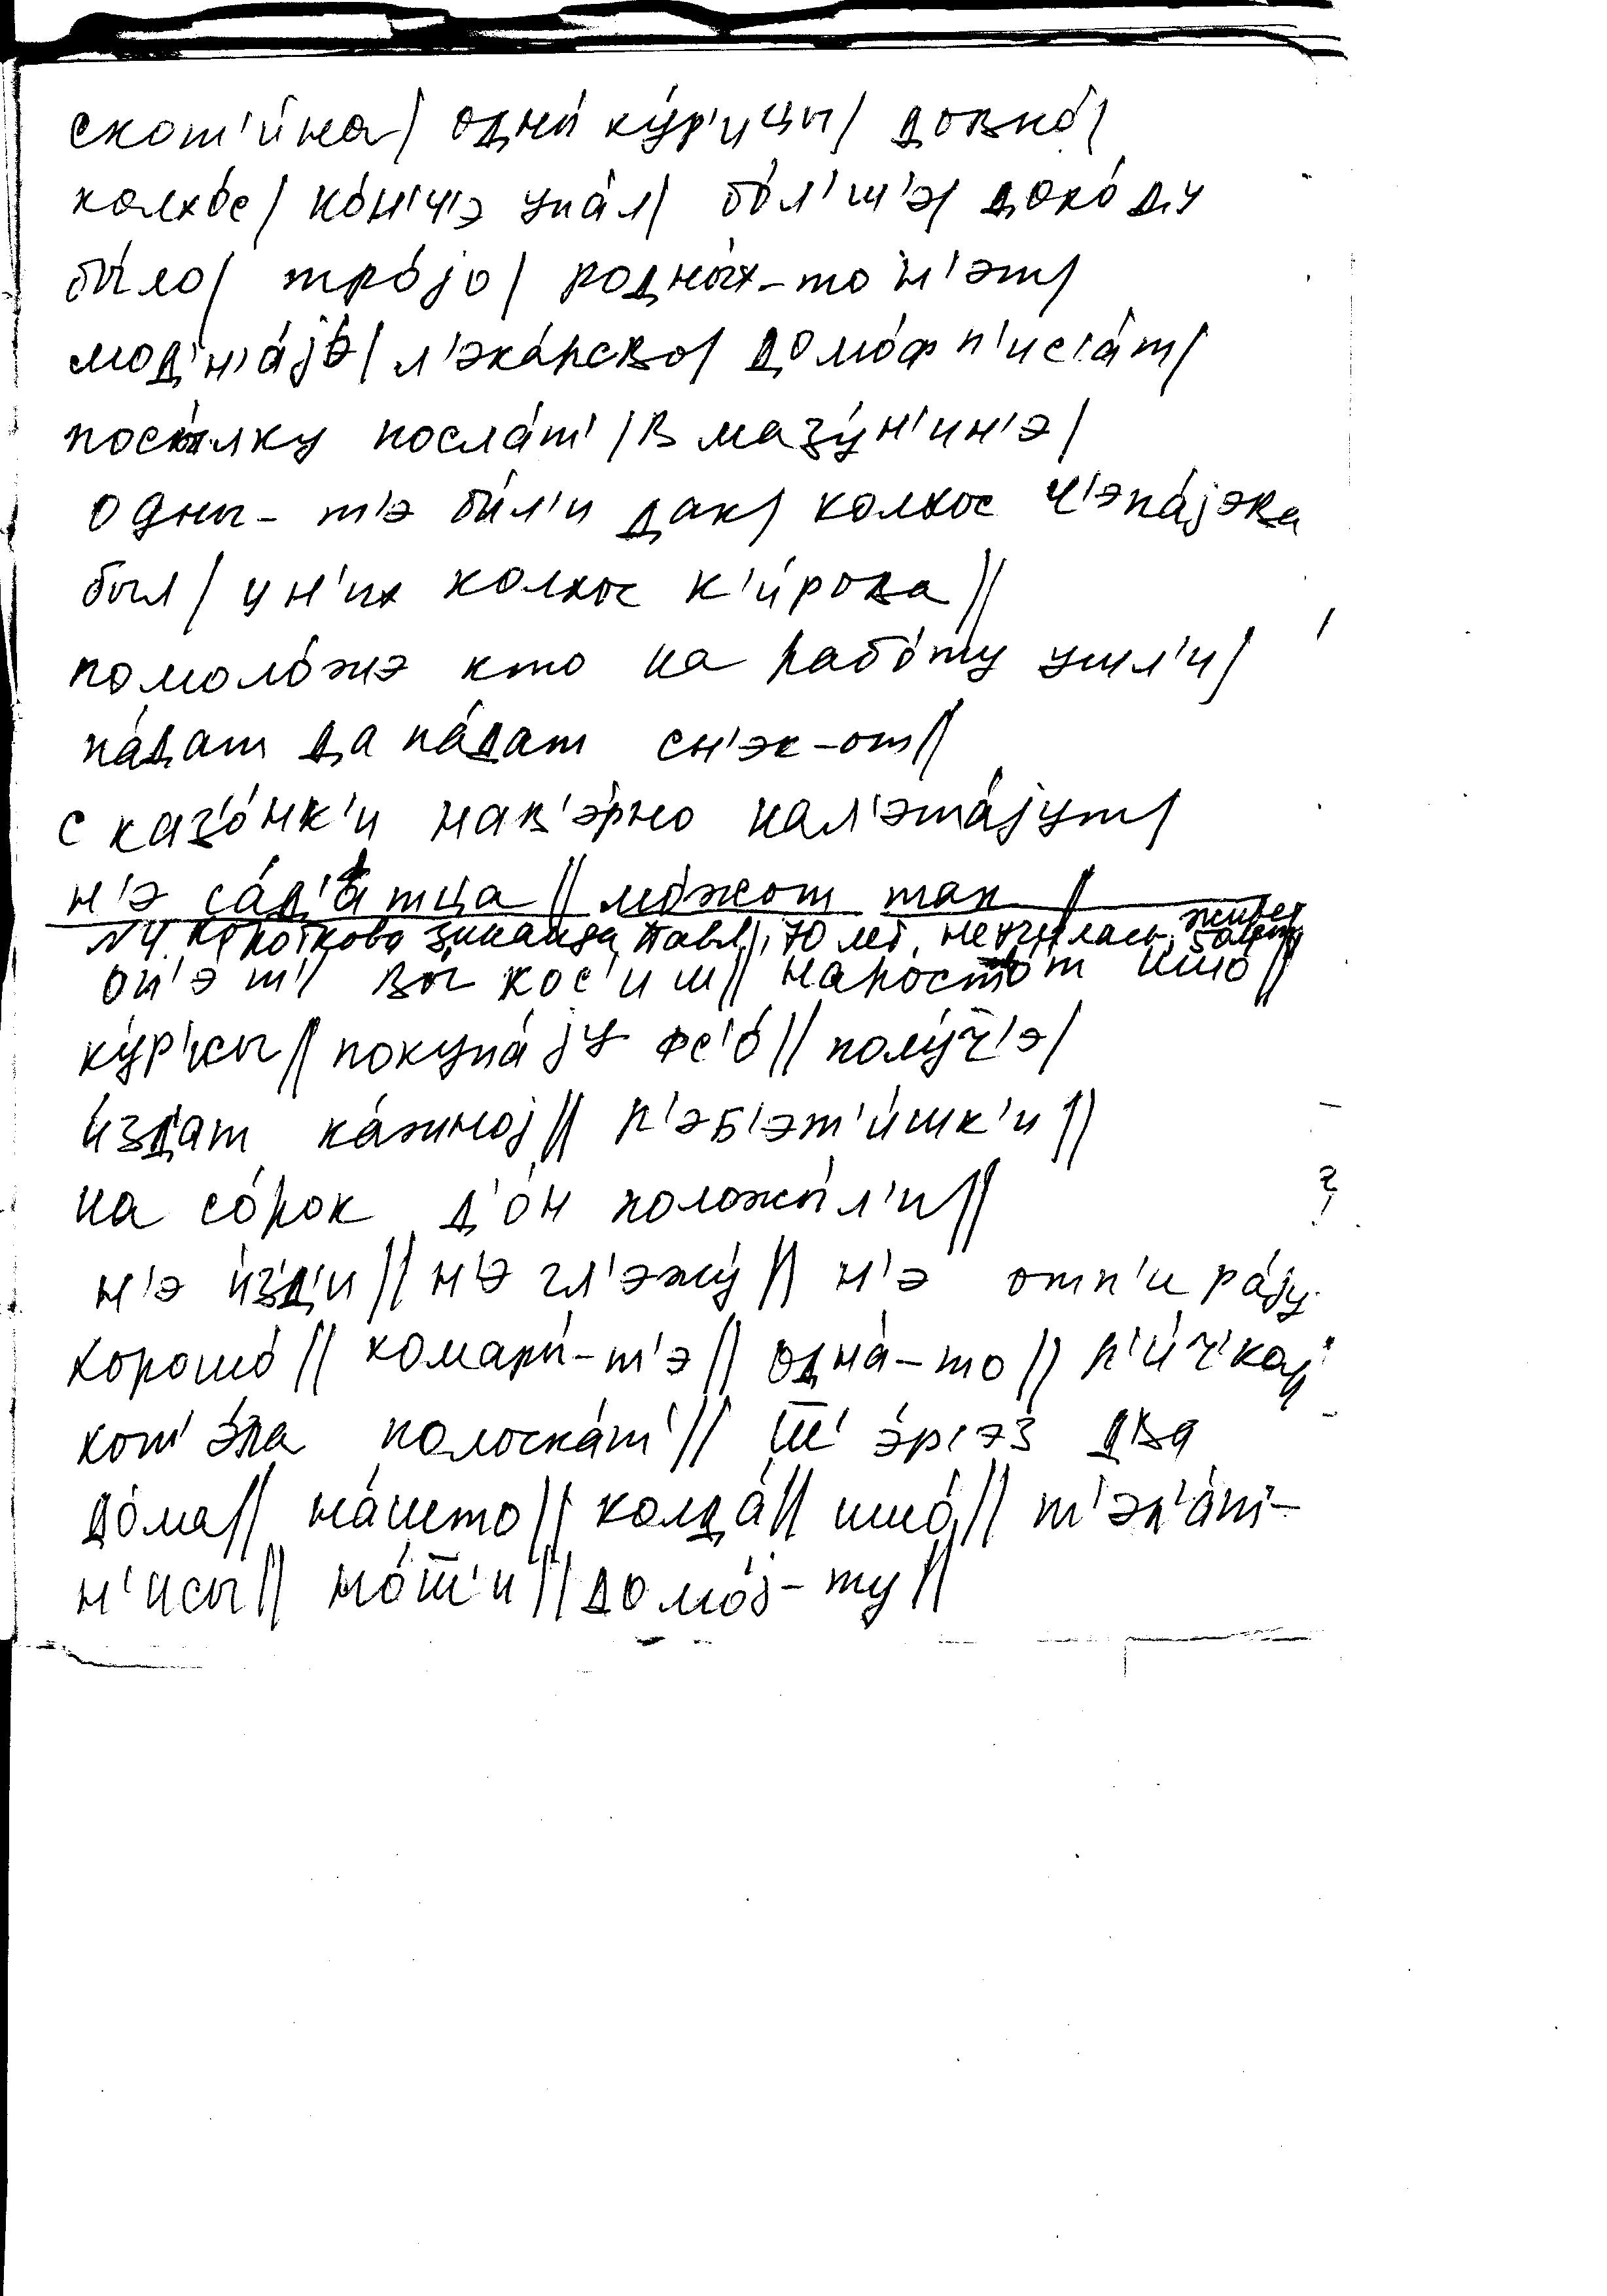 скот'и́на/ одны́ ку́р'ицы/ довно́/
колхо́с/ но́н'ч'э упа́л/ бо́л'ш'э/ дохо́ду
бы́ло/ тро́jо/ родны́х-то н'эт/
мод'н'а́jо/ л'эка́рсво/ домо́ф п'ис'а́т/
посы́лку посла́т'/ в мазу́н'ин'э/
одны-т'э бы́л'и дак/ колхос ч'апа́jэва
был/ у н'их колхос к'и́рова//
помоло́жэ кто на рабо́ту ушл'и/
па́дат да па́дат сн'эк-от//
с каз'о́нк'и нав'э́рно нал'эта́jут/
н'э са́д'атца// мо́жот так//
N4. Короткова Зинаида Павл., 70 лет, не училась, живет
оп'э́т'/ вы кос'им// наросто́т ишо́//
ку́р'исы// покупа́jу фс'о́// полу́ч'э/
и́здат ка́жноj// р'эб'эт'и́шк'и//
на со́рок д'о́н положы́л'и//
н'э и́зд'и// н'э гл'эжу́// н'э отп'ира́jу
хорошо́// комары́-т'э// одна́-то// р'и́ч'каj
хот'э́ла полоска́т'// ш' э́р'эз два
до́ма// на́што// колда́// ишо́// т'эп'а́т-
н'исы// но́ш'и// домо́j-ту//